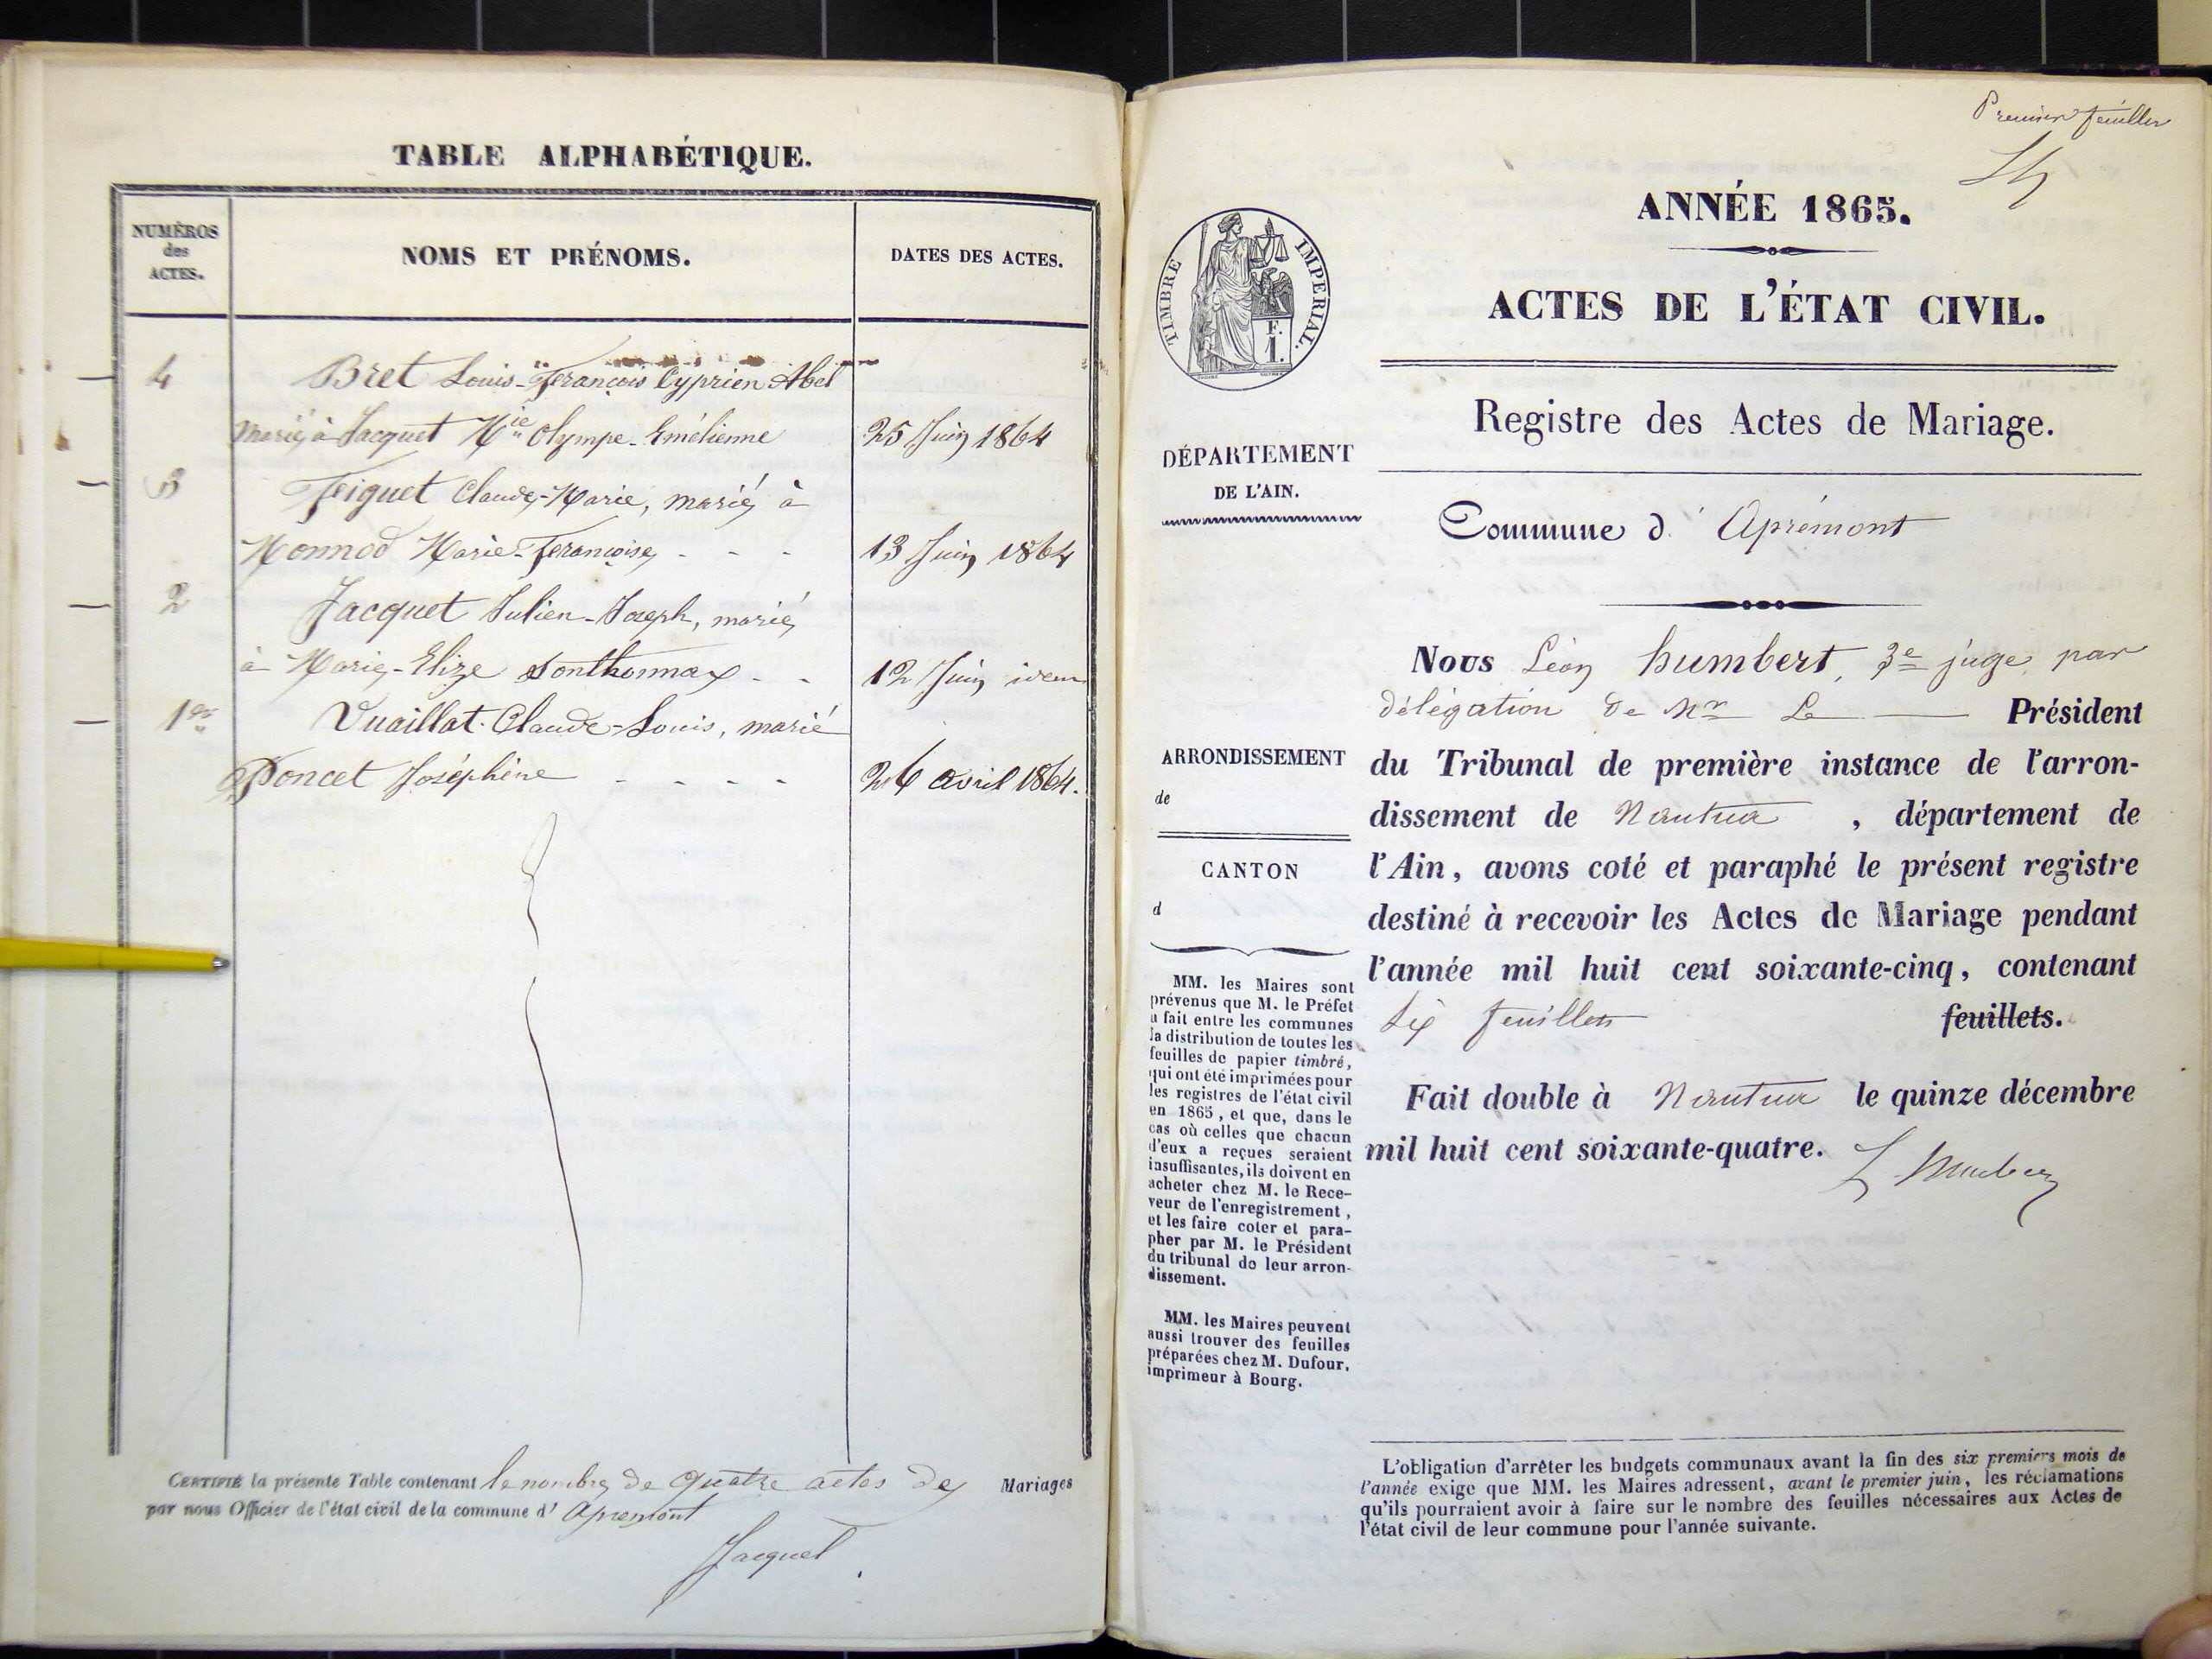 TABLE ALPHABÉTIQUE.
NUMÉROS
des
ACTES.
NOMS ET PRÉNOMS.
DATES DES ACTES.
4 Bret Louis-François Cyprien Abel
Marié à Jacquet Mie Olympe-Emélienne 25 Juin 1864
3 Figuet Claude-Marie, marié à
Monnod Marie-Françoise - - - 13 Juin 1864
2 Jacquet Julien-Joseph, marié
à Marie-Elize Sonthonnax - - 12 Juin idem
1er Vuaillat Claude-Louis, marié
Poncet Joséphine - - - - 26 avril 1864.
CERTIFIÉ la présente Table contenant le nombre de quatre actes de Mariages
par nous Officier de l'état civil de la commune d' Apremont
Jacquet
Premier feuillet
Lh
ANNÉE 1865.
ACTES DE L'ÉTAT CIVIL.
TIMBRE IMPERIAL.
F.
1.
Registre des Actes de Mariage.
DÉPARTEMENT
DE L'AIN.
Commune d' Apremont
Nous Léon humbert, 3e juge par
délégation de Mr Le Président
du Tribunal de première instance de l'arron-
dissement de Nantua , département de
l'Ain, avons coté et paraphé le présent registre
destiné à recevoir les Actes de Mariage pendant
l'année mil huit cent soixante-cinq, contenant
Six feuillets feuillets.
Fait double à Nantua le quinze décembre
mil huit cent soixante-quatre.
L humbert
ARRONDISSEMENT
de
CANTON
d
MM. les Maires sont
prévenus que M. le Préfet
a fait entre les communes
la distribution de toutes les
feuilles de papier timbré,
qui ont été imprimées pour
les registres de l'état civil
en 1865, et que, dans le
cas où celles que chacun
d'eux a reçues seraient
insuffisantes, ils doivent en
acheter chez M. le Rece-
veur de l'enregistrement,
et les faire coter et para-
pher par M. le Président
du tribunal de leur arron-
dissement.
MM. les Maires peuvent
aussi trouver des feuilles
préparées chez M. Dufour,
imprimeur à Bourg.
L'obligation d'arrêter les budgets communaux avant la fin des six premiers mois de
l'année exige que MM. les Maires adressent, avant le premier juin, les réclamations
qu'ils pourraient avoir à faire sur le nombre des feuilles nécessaires aux Actes de
l'état civil de leur commune pour l'année suivante.